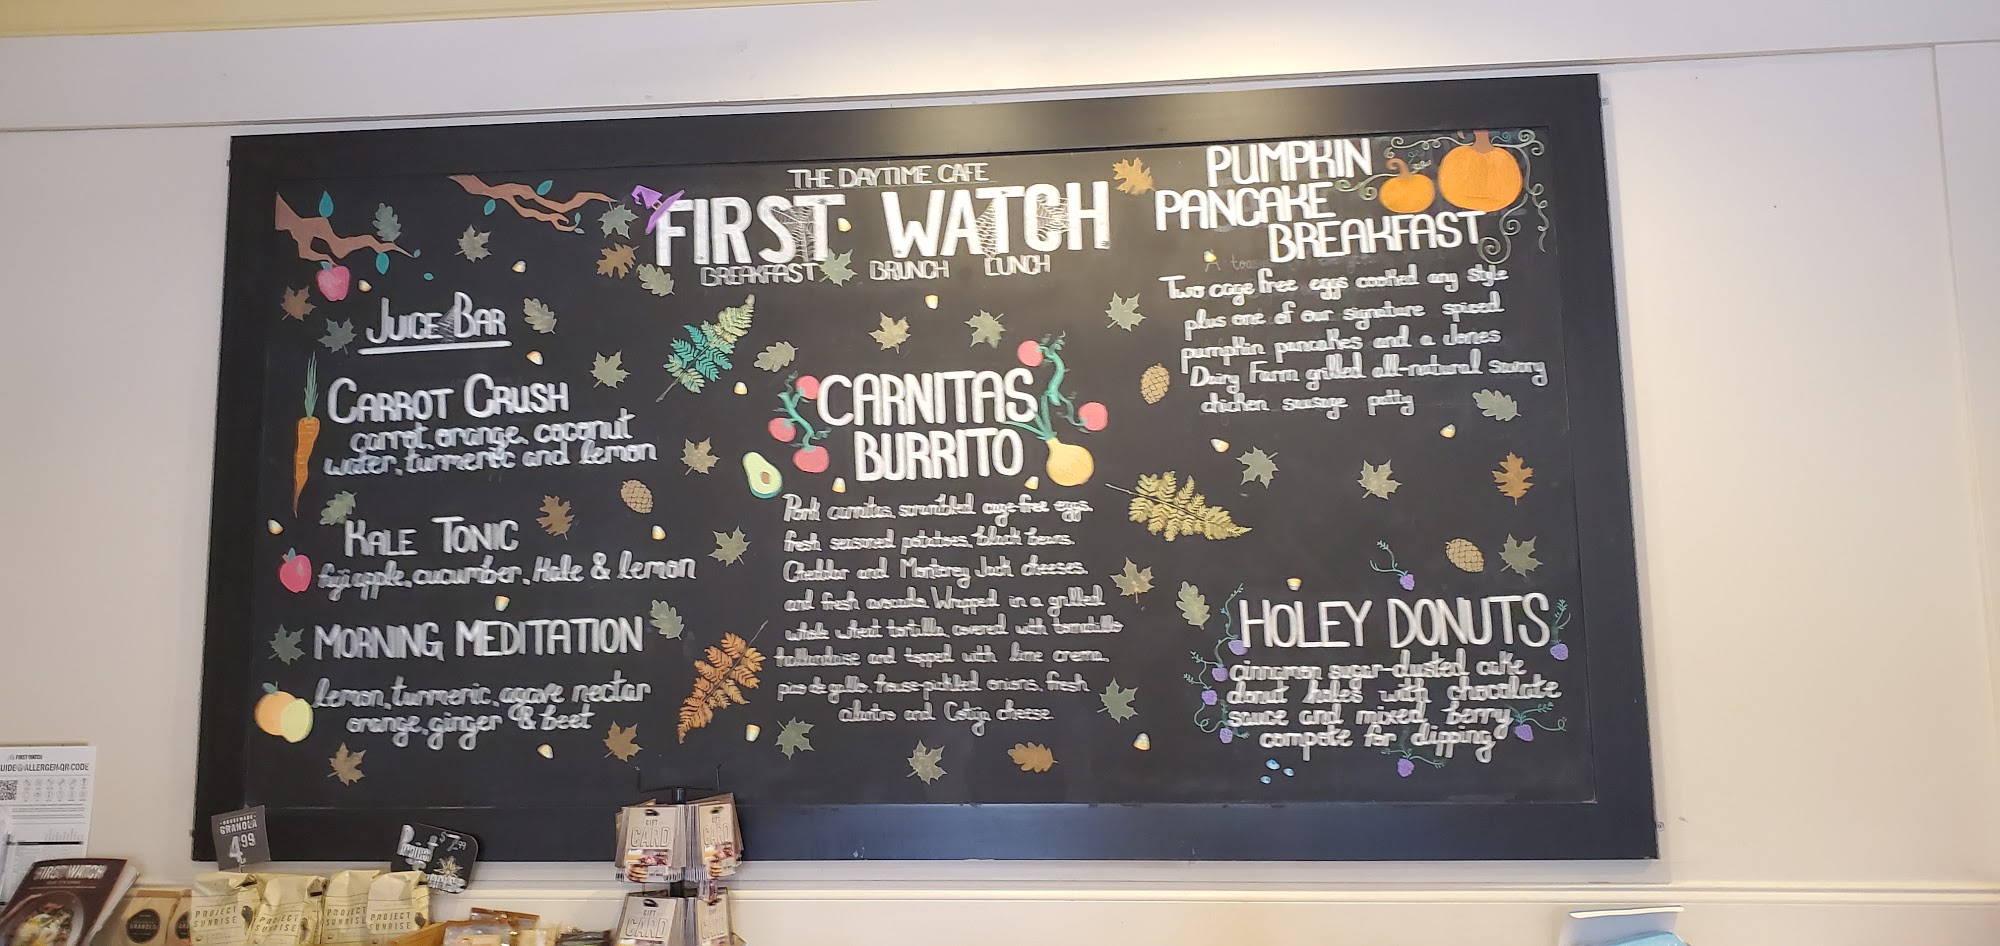 THE DAYTIME CAFE
FIRST WATCH
BREAKFAST BRUNCH LUNCH
JUICE BAR
CARROT CRUSH
carrot, orange, coconut
water, turmeric and lemon
KALE TONIC
fuji apple, cucumber, Kale & lemon
MORNING MEDITATION
lemon, turmeric, agave nectar
orange, ginger & beet
CARNITAS
BURRITO
Pork carnitas, scrambled cage-free eggs,
fresh seasoned potatoes, black beans,
Cheddar and Monterey Jack cheeses,
and fresh avocado. Wrapped in a grilled
whole wheat tortilla, covered with tomatillo
hollandaise and topped with lime crema,
pico de gallo, house-pickled onions, fresh
cilantro and Cotija cheese
PUMPKIN
PANCAKE
BREAKFAST
Two cage free eggs cooked any style
plus one of our signature spiced
pumpkin pancakes and a Jones
Dairy Farm grilled all-natural savory
chicken sausage patty
HOLEY DONUTS
cinnamon sugar-dusted cake
donut holes with chocolate
sauce and mixed berry
compote for dipping
FIRST WATCH
ALLERGEN QR CODE
HOUSEMADE
GRANOLA
4.99
$7.99
GIFT
CARD
GIFT
CARD
GIFT
CARD
FIRST WATCH
GRANOLA
PROJECT
SUNRISE
PROJECT
SUNRISE
PROJECT
SUNRISE
PROJECT
SUNRISE